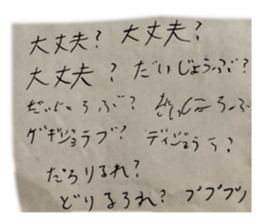 大丈夫? 大丈夫?
大丈夫? だいじょうぶ?
だいじょうぶ? だいじょうぶ
ゲギジョラブ? ディジョララ?
だろりるれ?
どりるろれ? ブブブブ